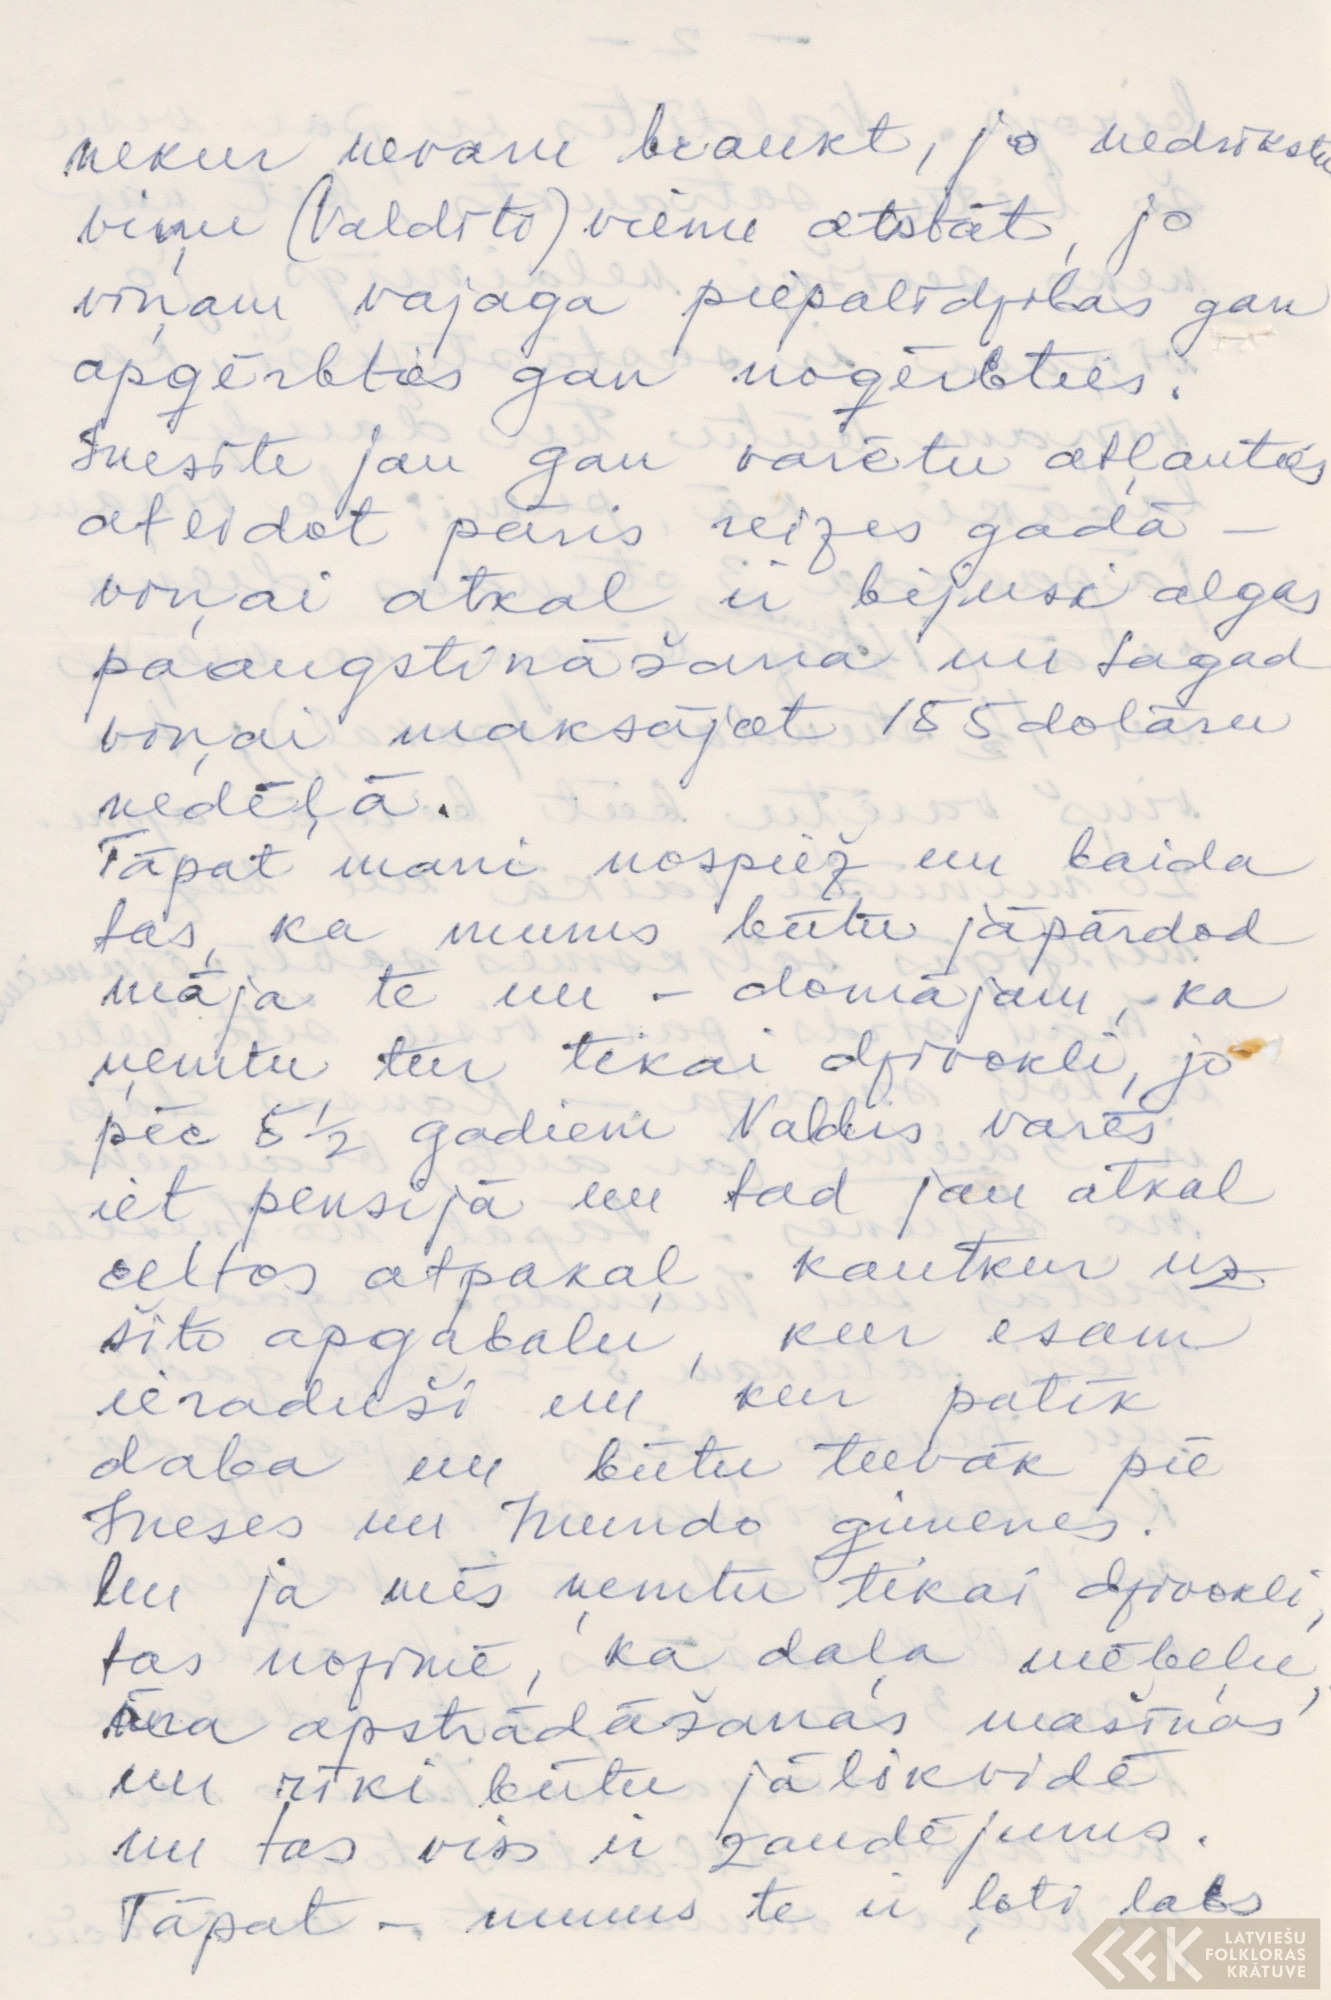 nekur nevaru braukt, jo nedrīkstu
viņu (Valdīti) vienu atstāt, jo
viņam vajaga piepalīdzības gan
apģērbties gan noģērbties.
Inesīte jau gan varētu atļauties
atlidot pāris reizes gadā –
viņai atkal ir bijusi algas
paaugstināšana un tagad
viņai maksājot 155 dolāru
nedēļā.
Tāpat mani nospiež un baida
tas, ka mums būtu jāpārdod
māja te un – domājam, ka
ņemtu tur tikai dzīvokli, jo
pēc 5½ gadiem Valdis varēs
iet pensijā un tad jau atkal
celtos atpakaļ kautkur uz
šito apgabalu, kur esam
ieraduši un kur patīk
daba un būtu tuvāk pie
Ineses un Mundo ģimenes.
Un ja mēs ņemtu tikai dzīvokli,
tas nozīmē, ka daļa mēbeļu,
āra apstrādāšanas mašīnas
un rīki būtu jālikvidē
un tas viss ir zaudējums.
Tāpat – mums te ir ļoti labs
LATVIEŠU
FOLKLORAS
KRĀTUVE